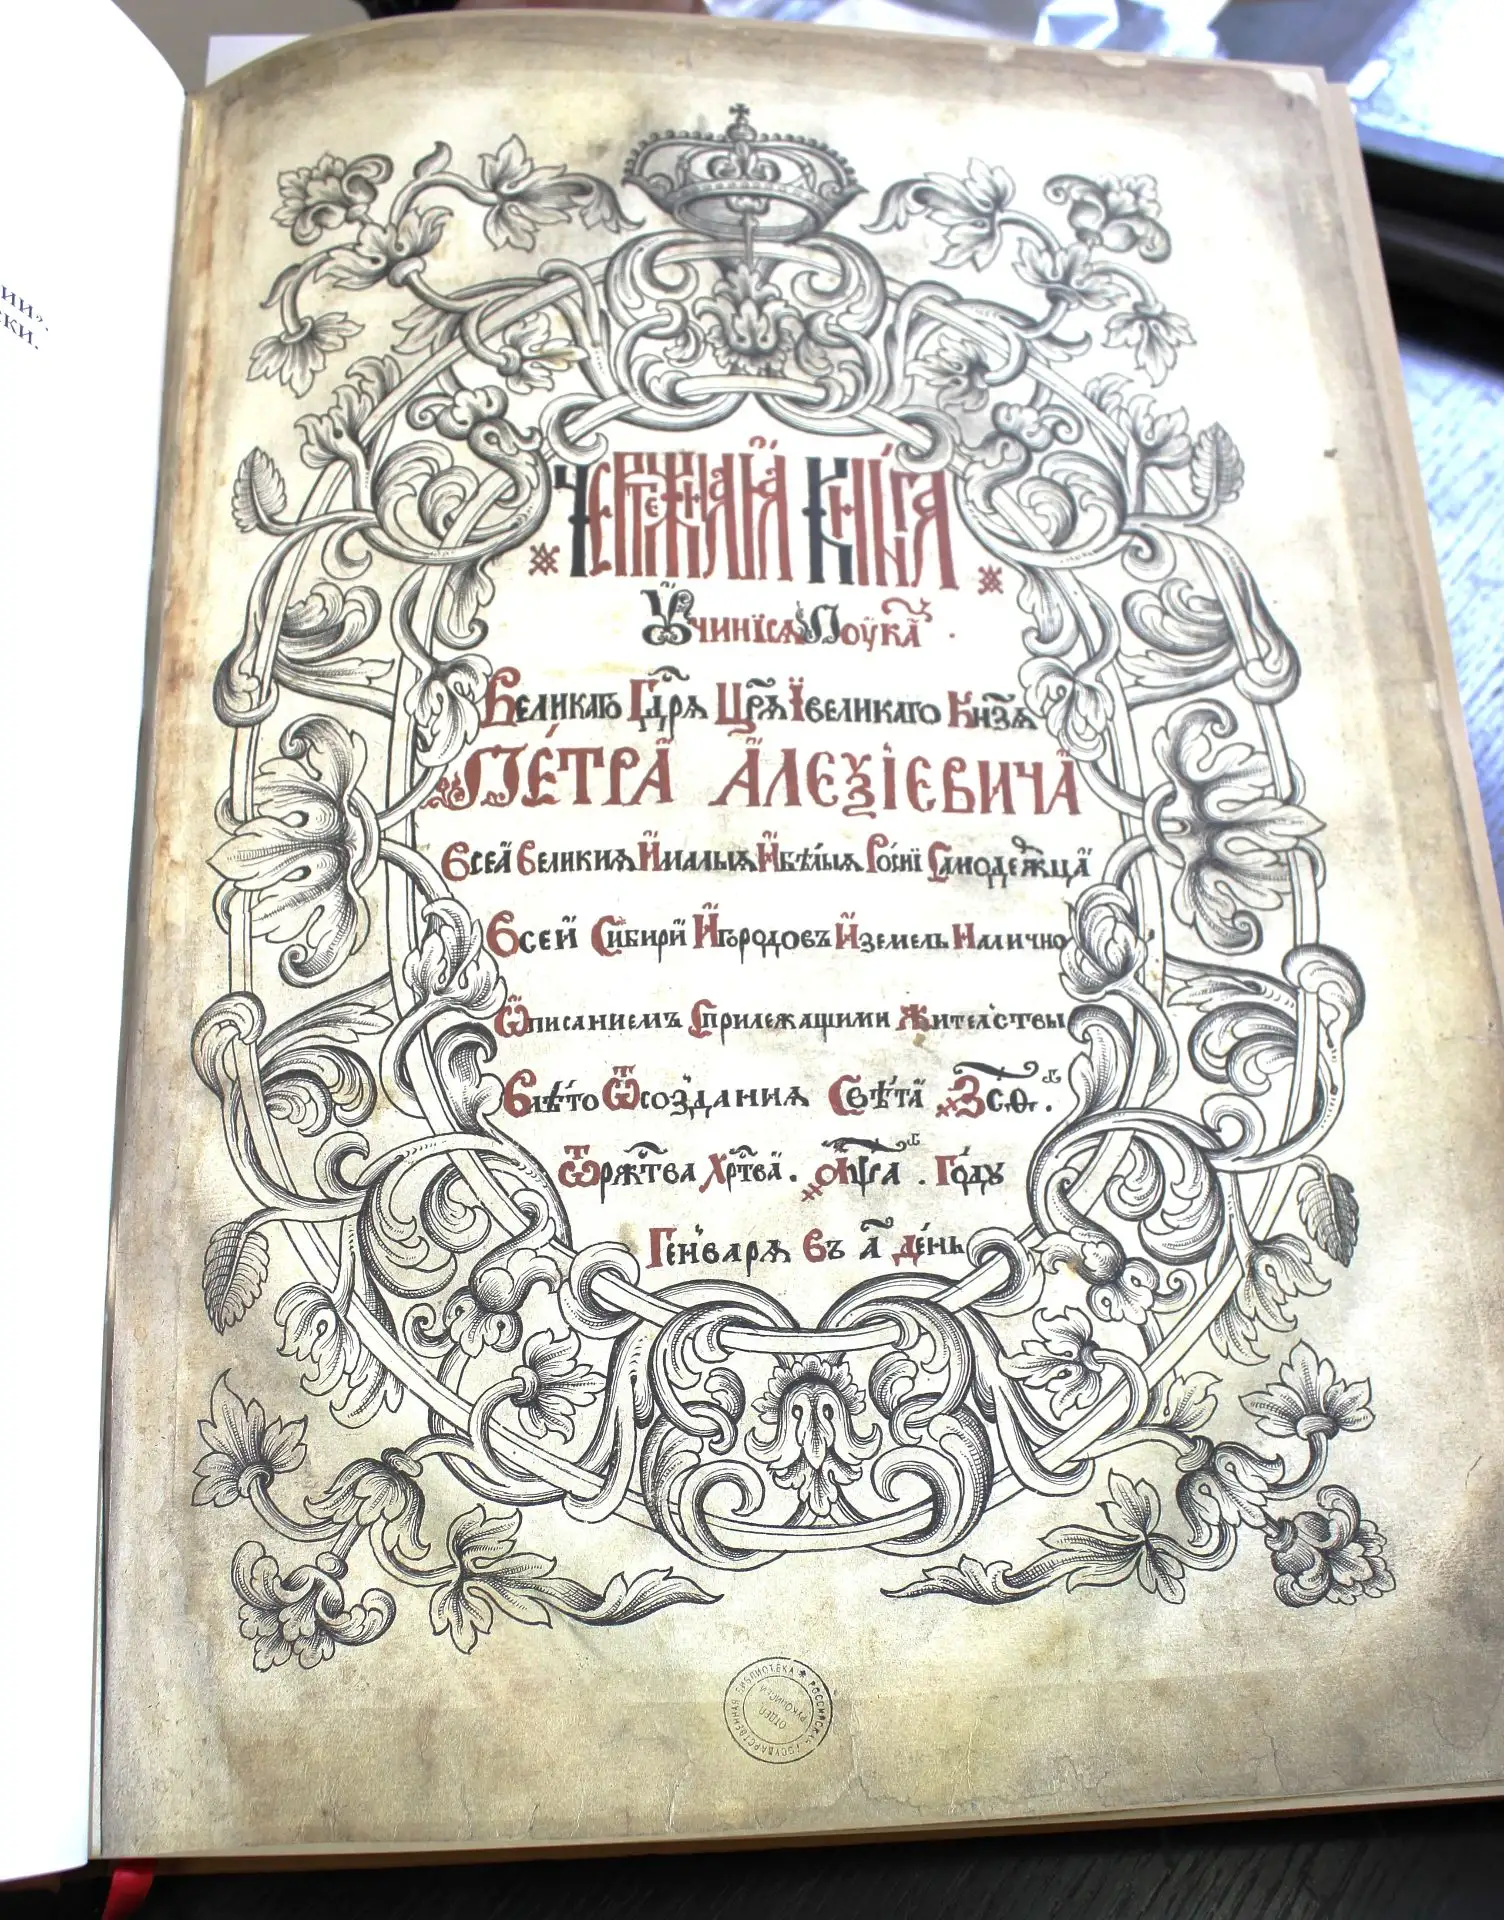 ии".
ки.
Чертежнаѧ Книга
Ѹчинисѧ Поука҃ .
Великагѡ Гдⷭ҇рѧ Црⷭ҇ѧ Ївеликагѡ Кнѧзѧ
Пе́тра А҆леѯі́евича
Всеѧ҆ Великиѧ И҆малыѧ И҆бѣлыѧ Росиї Самодержца
Всей Сибири И҆городовъ И҆земель Налично
Ѡ҆писаниемъ Сприлежащими Жителствы
Влѣто Ѿсозданиѧ Свѣта ҂ЗСѲ.
Ѿржⷭ҇тва Хрⷭ҇тва. ҂АѰА. Го́дꙋ
Генварѧ Въ А҃ де́нь
РОССИЙСКАЯ ГОСУДАРСТВЕННАЯ БИБЛИОТЕКА
ОТДЕЛ
РУКОПИСЕЙ